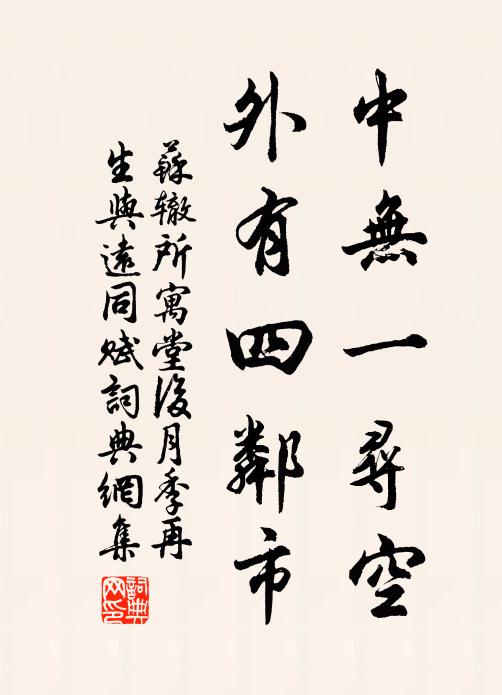 中無一尋空
外有四鄰市
蘇辙所寓堂後月季再
生與遠同賦詞典網集
詞典
网印